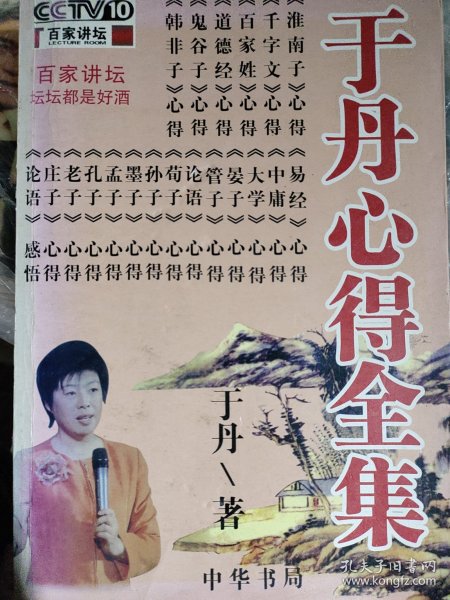 CCTV10
百家讲坛
LECTURE ROOM
百家讲坛
坛坛都是好酒
于丹心得全集
《淮南子》心得
《千字文》心得
《百家姓》心得
《道德经》心得
《鬼谷子》心得
《韩非子》心得
《易经》心得
《中庸》心得
《大学》心得
《晏子》心得
《管子》心得
《论语》心得
《荀子》心得
《孙子》心得
《墨子》心得
《孟子》心得
《孔子》心得
《老子》心得
《庄子》心得
《论语》感悟
于丹\著
中华书局
孔夫子旧书网
www.kongfz.com